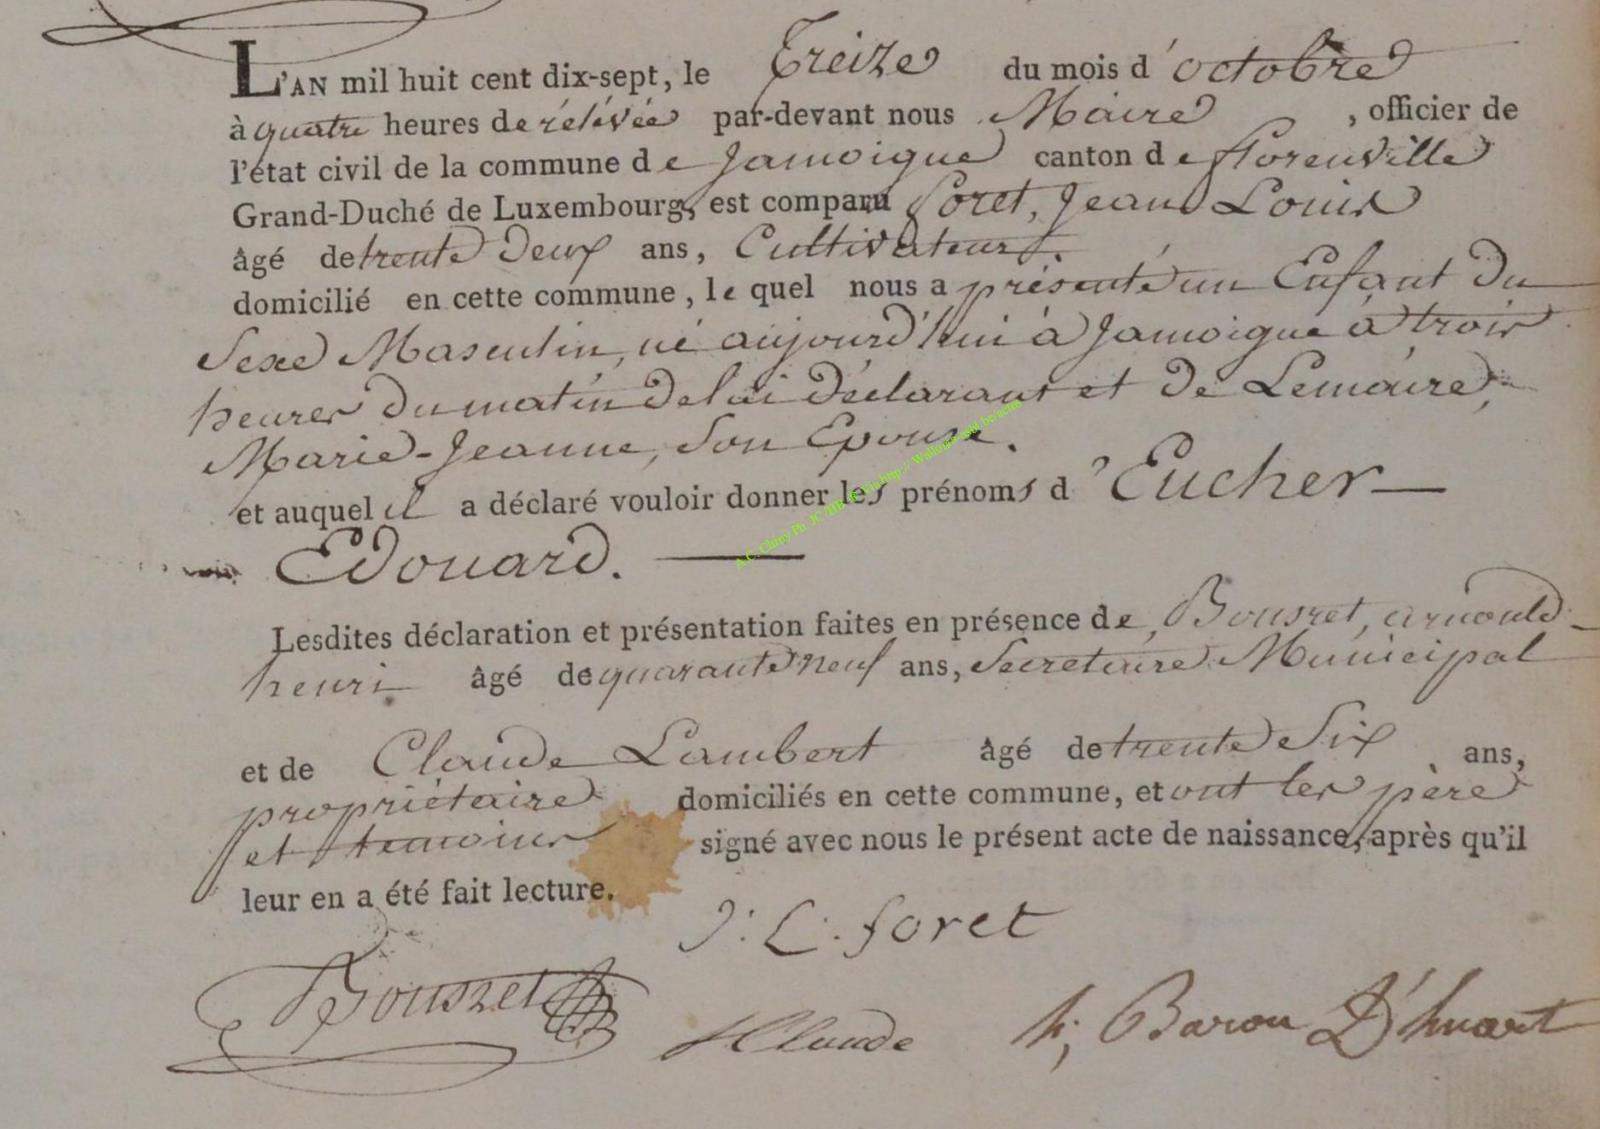 L'AN mil huit cent dix-sept, le Treize du mois d'octobre
à quatre heures de rélévée par-devant nous Maire, officier de
l'état civil de la commune de Jamoigne canton de florenville
Grand-Duché de Luxembourg, est comparu foret, Jean Louis
âgé de trente deux ans, Cultivateur.
domicilié en cette commune, le quel nous a présenté un Enfant Du
Sexe Masculin, né aujourd'hui à Jamoigne à trois
heures Du matin De lui Déclarant et De Lemaire,
Marie-Jeanne, Son Epouse.
et auquel il a déclaré vouloir donner les prénoms d'Eucher
Edouard.
Lesdites déclaration et présentation faites en présence de, Bousret, arnould
henri âgé de quarante neuf ans, Secretaire Municipal
et de Claude Lambert âgé de trente Six ans,
propriétaire domiciliés en cette commune, et ont les père
et temoins signé avec nous le présent acte de naissance, après qu'il
leur en a été fait lecture.
J: L: foret
Bousret Claude h; Baron D'huart